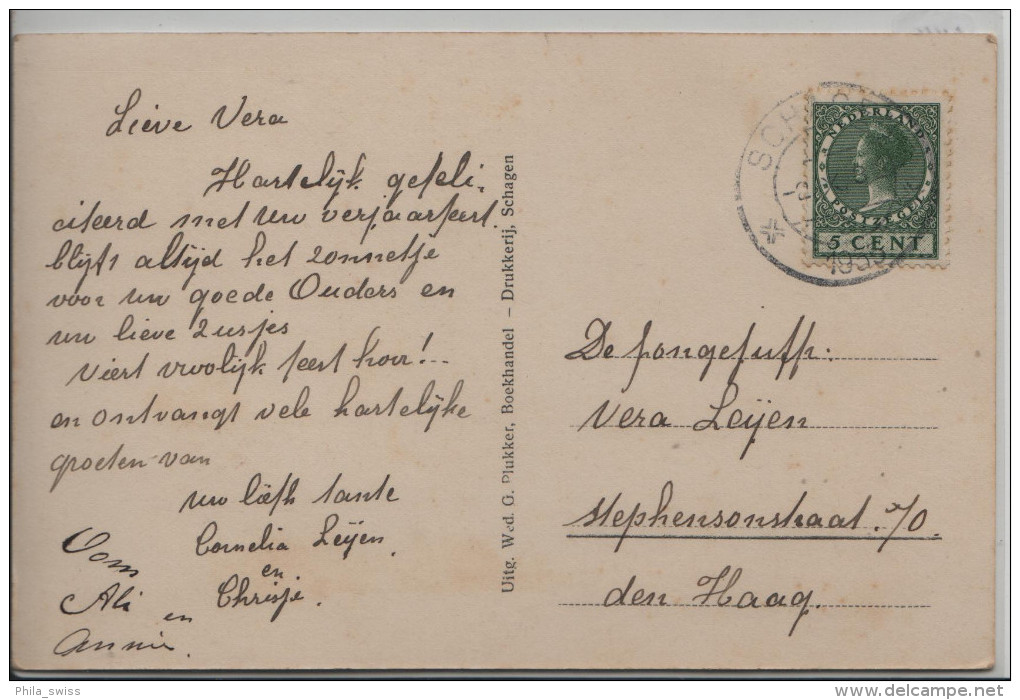 Lieve Vera
Hartelijk gefeli-
citeerd met uw verjaarfeest.
blijft altijd het zonnetje
voor uw goede Ouders en
uw lieve zusjes
viert vroolijk feest hoor!..
en ontvangt vele hartelijke
groeten van
uw liefh tante
Cornelia Leijen.
en
Chrisje.
Oom
Ali
en
Annie.
Uitg. Wed. G. Plukker, Boekhandel – Drukkerij, Schagen
NEDERLAND
POSTZEGEL
5 CENT
De jongejuffr:
Vera Leijen
Stephensonstraat 70.
den Haag.
Phila_swiss
www.delcampe.net